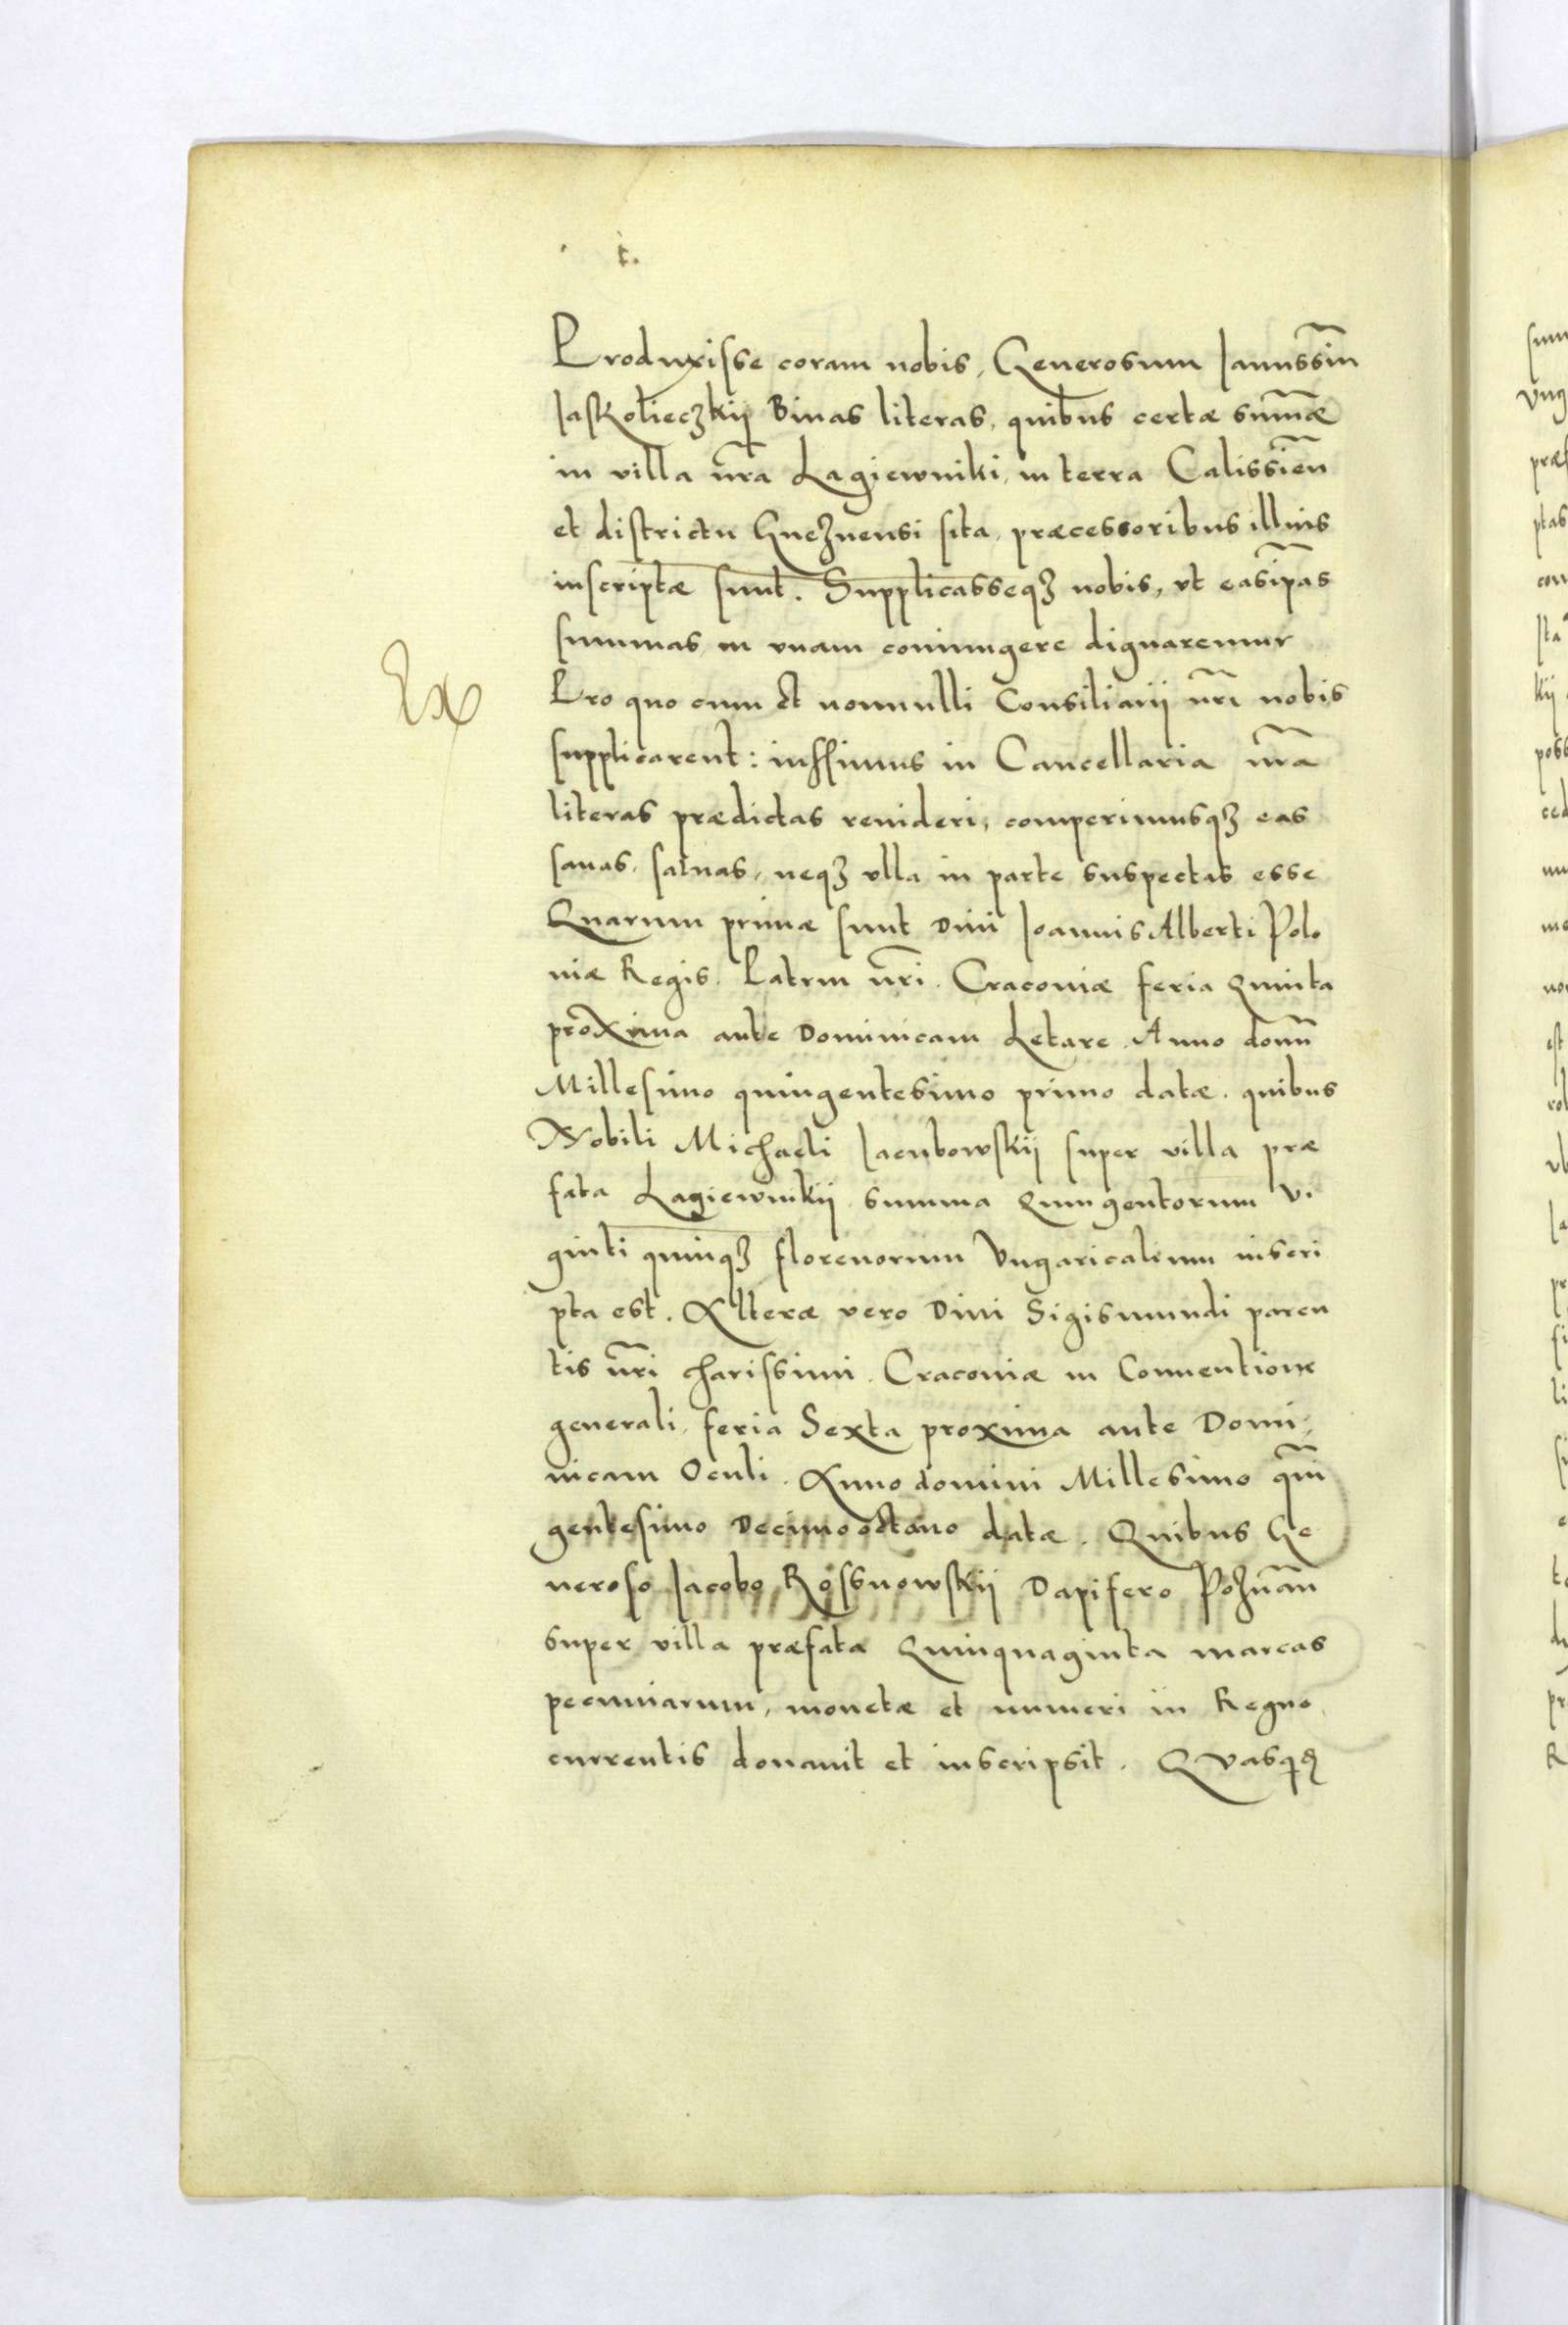 t.
Produxisse coram nobis, Generosum Janussiū
Jaskolieczkij Binas literas, quibus certæ summæ
in villa nr̄a Lagiewniki, in terra Calissień
et districtu Gneznensi sita, præcessoribus illius
inscriptæ sunt. Supplicasseqȝ nobis, vt easīpas
summas in vnam coniungere dignaremur
Ex
Pro quo cum et nonnulli Consiliarij nr̄i nobis
supplicarent: iussimus in Cancellaria nr̄a
literas prædictas reuideri, comperimusqȝ eas
sanas, saluas, neqȝ vlla in parte suspectas esse
Quarum primæ sunt Diui Joannis Alberti Polo
niæ Regis. Patrui nr̄i. Cracouiæ feria Quinta
proxima ante Dominicam Letare. Anno domī
Millesimo quingentesimo primo datæ. quibus
Nobili Michaeli Jacubowskij super villa præ
fata Lagiewnikij summa Quingentorum vi
ginti quinqȝ florenorum Vngaricalium inscri
pta est. Alteræ vero Diui Sigismundi paren
tis nr̄i charissimi. Cracouiæ in Conuentione
generali, feria Sexta proxima ante Domi,
nicam Oculi. Anno domini Millesimo quī
gentesimo Decimooctauo datæ. Quibus Ge
neroso Jacobo Rossnowskij Dapifero Poznań
super villa præfata Quinquaginta marcas
pecuniarum, monetæ et numeri in Regno
currentis donauit et inscripsit. Quasqȝ